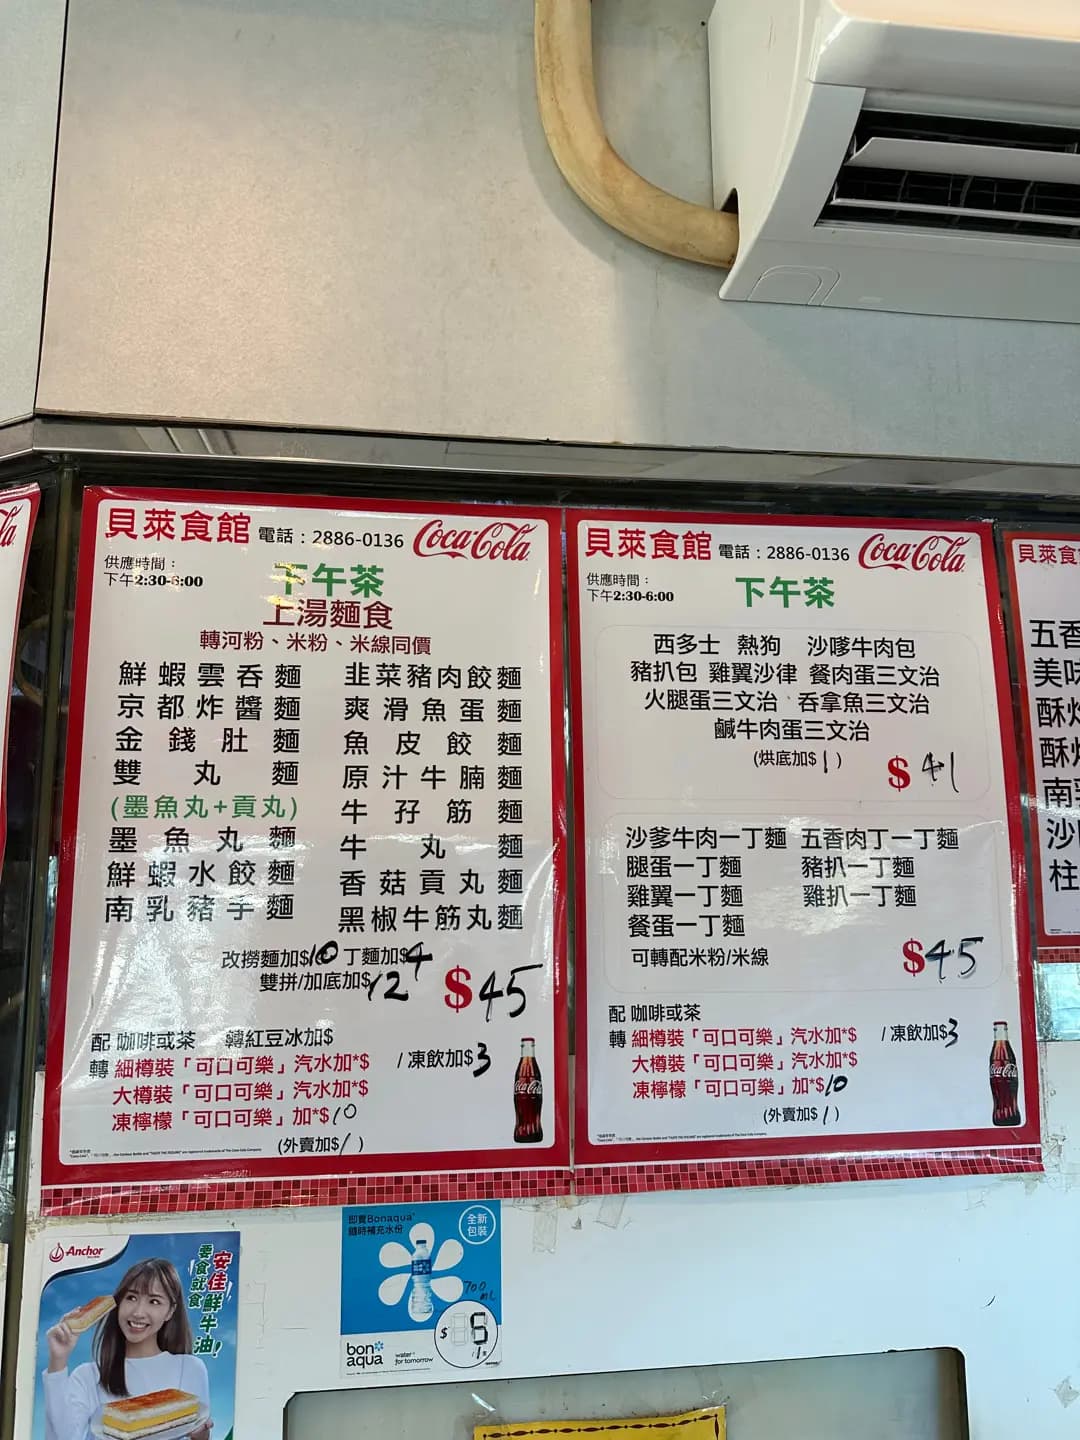 la
貝萊食館 電話：2886-0136 Coca-Cola
供應時間：
下午2:30-6:00
下午茶
上湯麵食
轉河粉、米粉、米線同價
鮮蝦雲吞麵
京都炸醬麵
金錢肚麵
雙丸麵
(墨魚丸+貢丸)
墨魚丸麵
鮮蝦水餃麵
南乳豬手麵
韭菜豬肉餃麵
爽滑魚蛋麵
魚皮餃麵
原汁牛腩麵
牛孖筋麵
牛丸麵
香菇貢丸麵
黑椒牛筋丸麵
改撈麵加$10 丁麵加$4
雙拼/加底加$12
$45
配 咖啡或茶 轉紅豆冰加$
轉 細樽裝「可口可樂」汽水加*$ / 凍飲加$3
大樽裝「可口可樂」汽水加*$
凍檸檬「可口可樂」加*$10
(外賣加$1)
貝萊食館 電話：2886-0136 Coca-Cola
供應時間：
下午2:30-6:00
下午茶
西多士 熱狗 沙嗲牛肉包
豬扒包 雞翼沙律 餐肉蛋三文治
火腿蛋三文治、吞拿魚三文治
鹹牛肉蛋三文治
(烘底加$1)
$41
沙爹牛肉一丁麵 五香肉丁一丁麵
腿蛋一丁麵 豬扒一丁麵
雞翼一丁麵 雞扒一丁麵
餐蛋一丁麵
可轉配米粉/米線
$45
配 咖啡或茶
轉 細樽裝「可口可樂」汽水加*$ / 凍飲加$3
大樽裝「可口可樂」汽水加*$
凍檸檬「可口可樂」加*$10
(外賣加$1)
貝萊食
五香
美味
酥炸
酥炸
南乳
沙
柱
Anchor
安佳鮮牛油!
零食就食
即買Bonaqua
隨時補充水份
全新
包裝
700
mL
$6
/1支
bon
aqua
water
for tomorrow